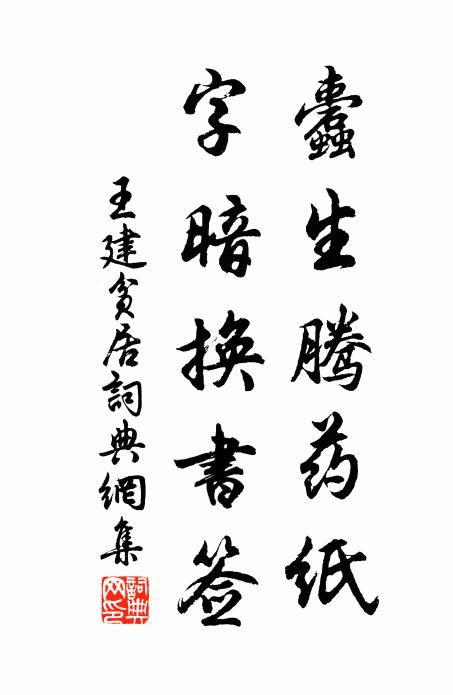 蠹生腾药纸
字暗换書签
王建貧居詞典網集
詞典网印